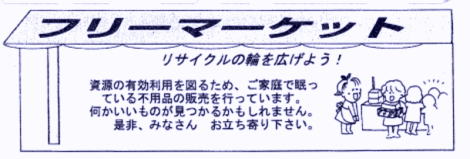 フリーマーケット
リサイクルの輪を広げよう！
資源の有効利用を図るため、ご家庭で眠っ
ている不用品の販売を行っています。
何かいいものが見つかるかもしれません。
是非、みなさん　お立ち寄り下さい。